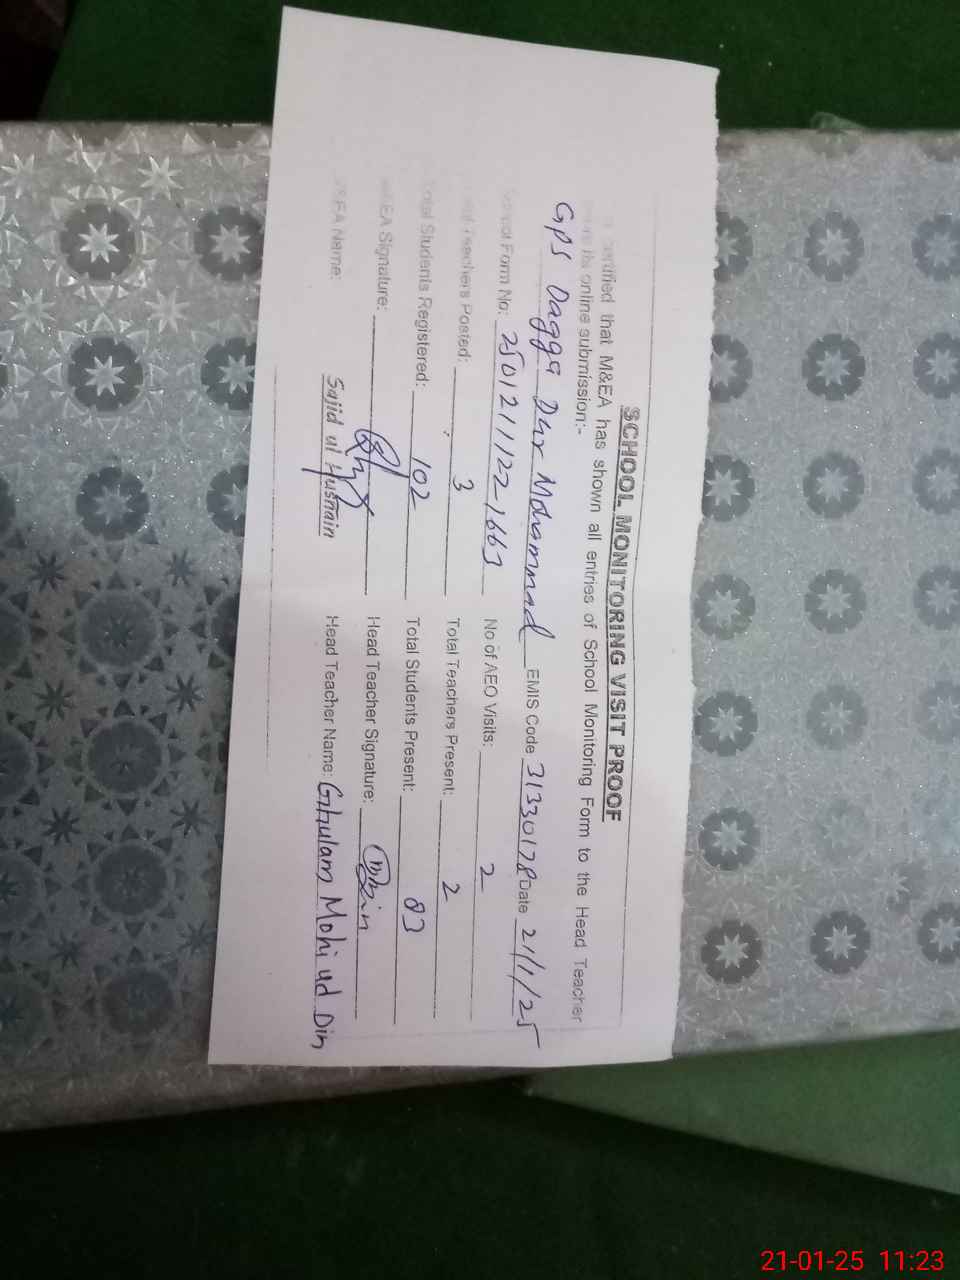 SCHOOL MONITORING VISIT PROOF
certified that M&EA has shown all entries of School Monitoring Form to the Head Teacher
its online submission:-
GPS Dagga Dur Mohammad EMIS Code 31330178 Date 21/1/25
School Form No: 2501211122-1663 No of AEO Visits: 2
Teachers Posted: 3 Total Teachers Present: 2
Total Students Registered: 102 Total Students Present: 83
EA Signature: Head Teacher Signature:
EA Name: Sajid ul Husnain Head Teacher Name: Ghulam Mohi ud Din
21-01-25 11:23